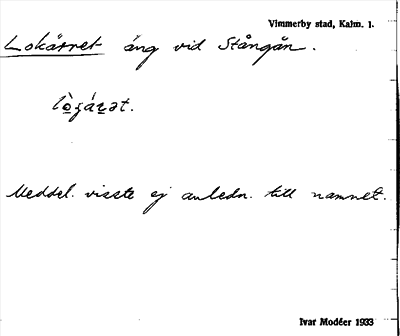 Vimmerby stad, Kalm. l.
Lokärret äng vid Stångån.
lò̱ʒáṟət.
Meddel. visste ej anledn. till namnet.
Ivar Modéer 1933